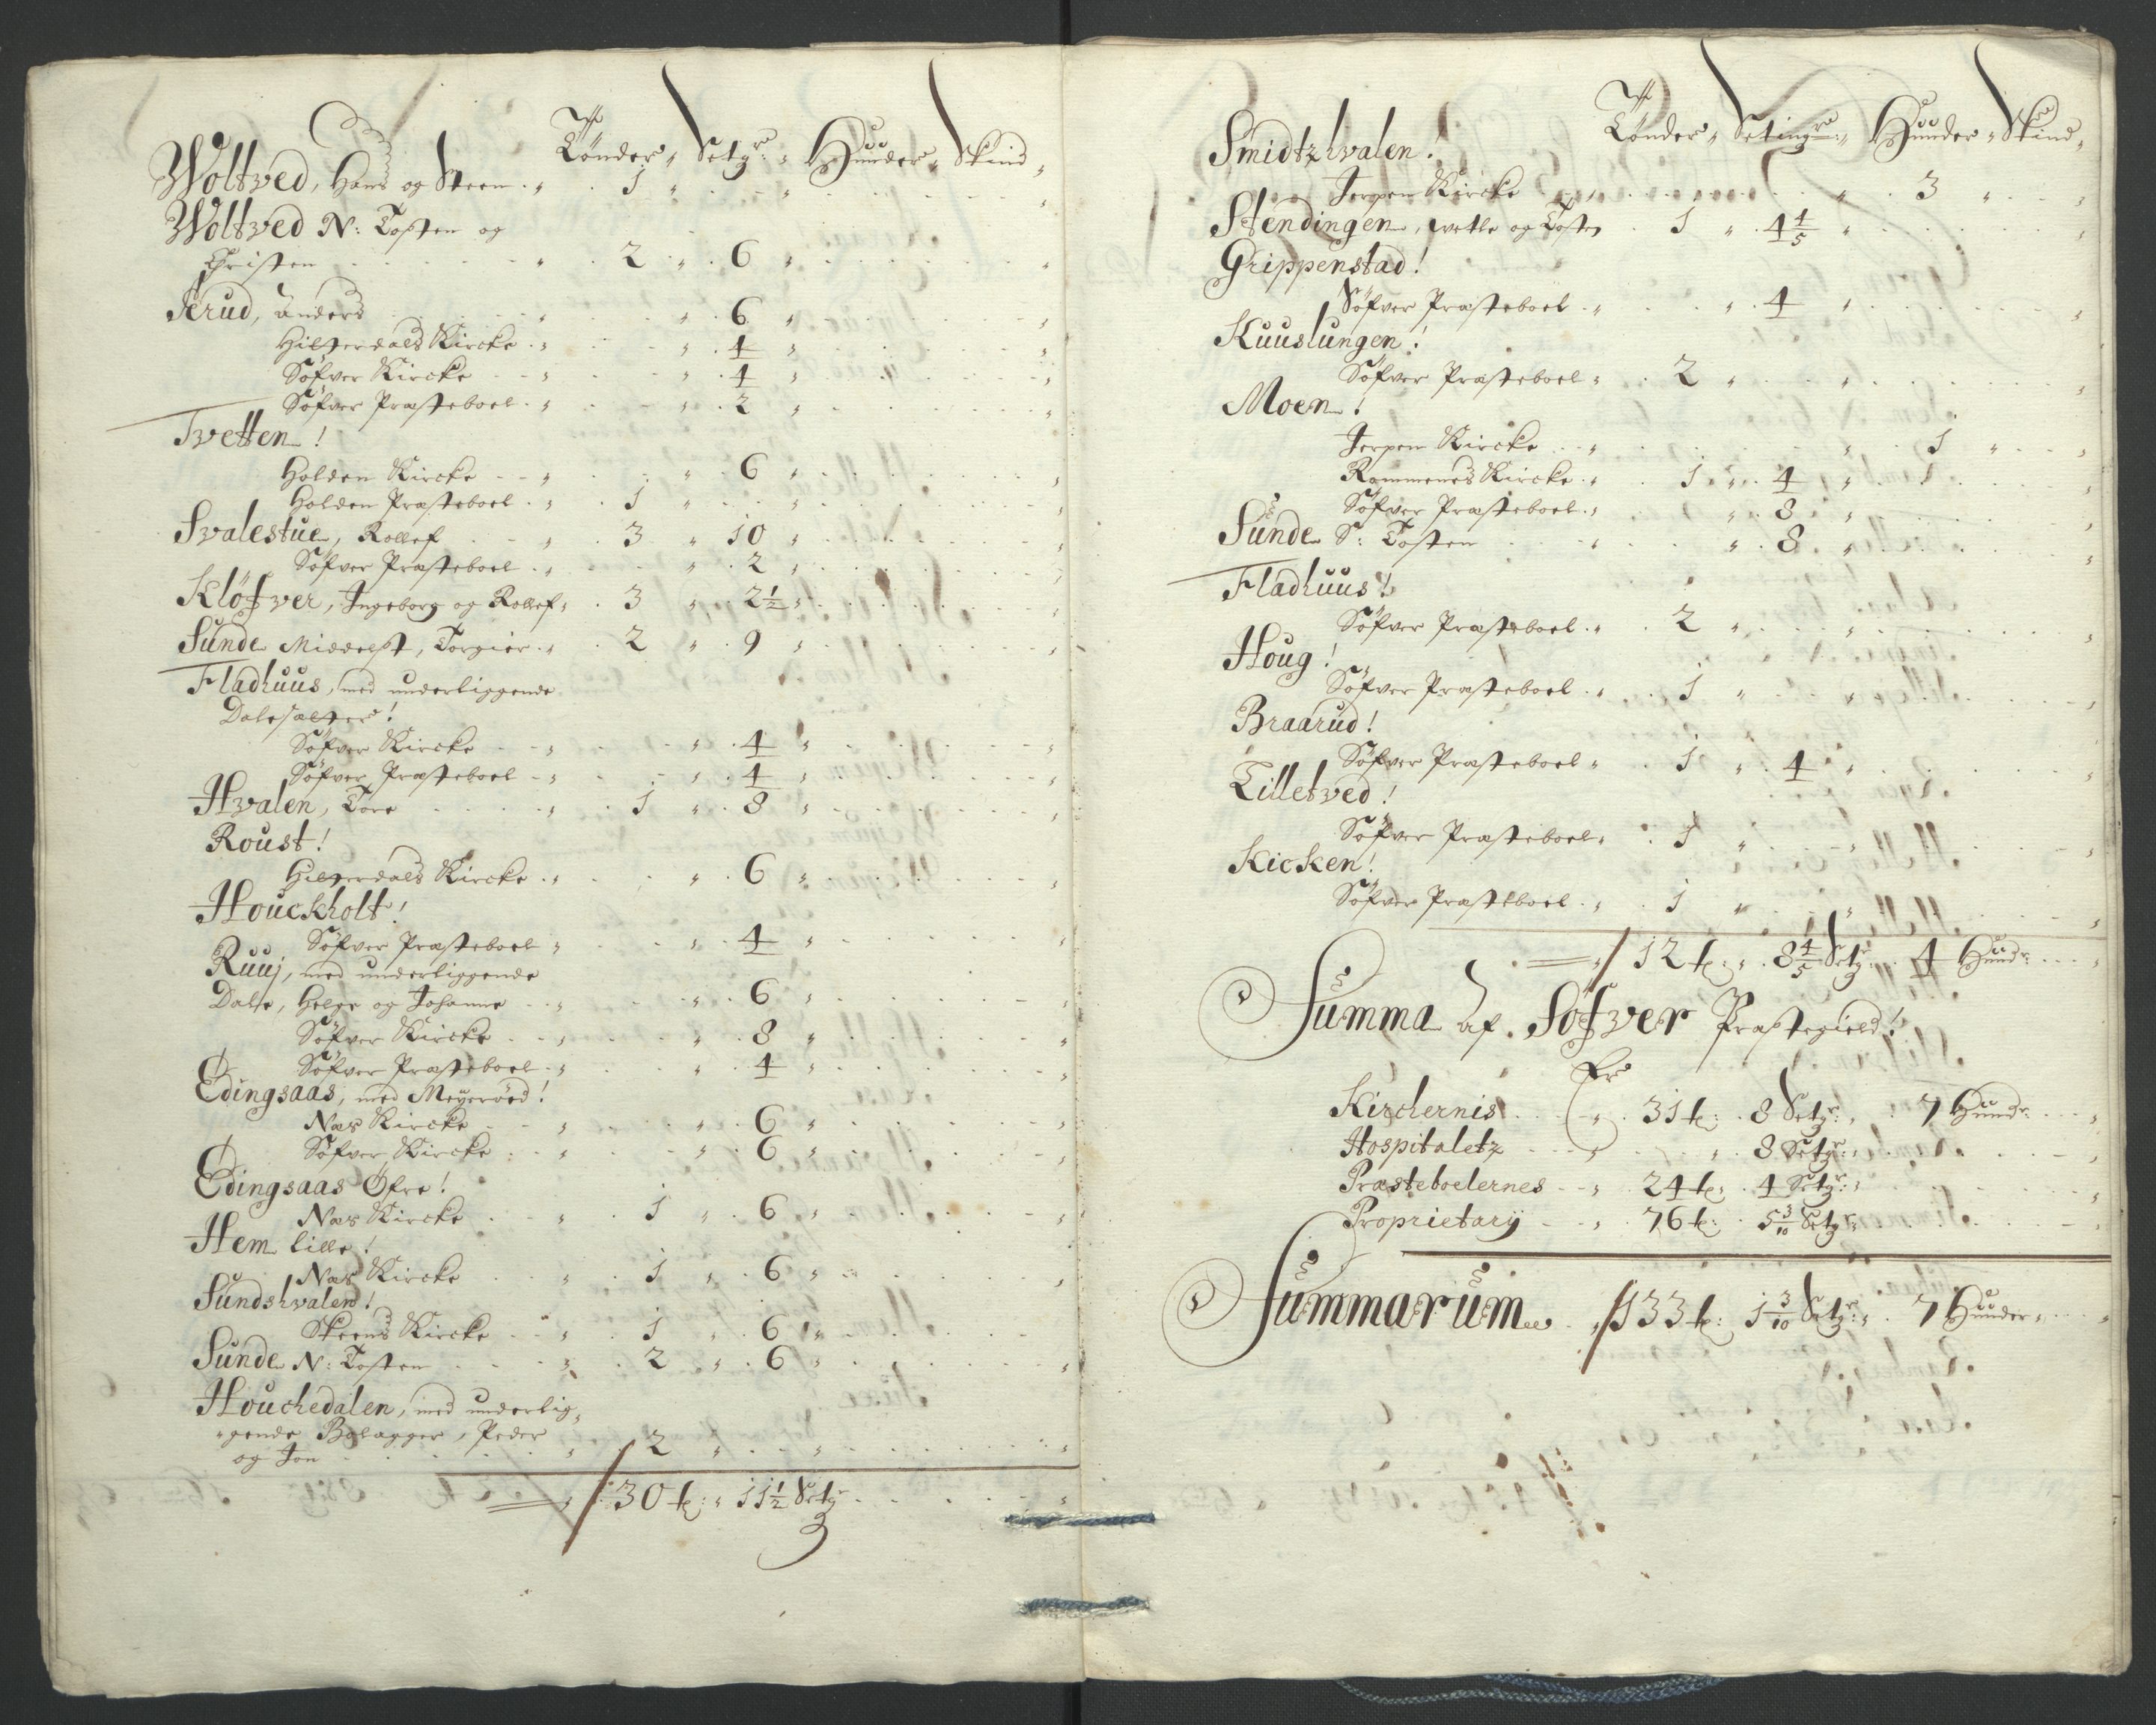 Tønder Setgr: Hunder Skind
Woltved, Hans og Steen 1
Woltved N: Tosten og
Christen 2 6
Jerud, Anders 6
Hitterdals Kircke 4
Söfver Kircke 4
Söfver Præsteboel 2
Tvetten!
Holden Kircke 6
Holden Præsteboel 1
Svalestue, Rollef 3 10
Söfver Præsteboel 2
Klöfver, Ingeborg og Rollef 3 2½
Sunde Middelst, Torgier 2 9
Fladhuus, med underliggende
Dalesæter!
Söfver Kircke 4
Söfver Præsteboel 4
Hvalen, Tore 1 8
Roust!
Hitterdals Kircke 6
Houckholt!
Söfver Præsteboel 4
Ruuj, med underliggende
Dale, Helge og Johanne 6
Söfver Kircke 8
Söfver Præsteboel 4
Edingsaas, med Meyeröed!
Næs Kircke 6
Söfver Kircke 6
Edingsaas Øfre!
Næs Kircke 1 6
Hem lille!
Næs Kircke 1 6
Sundshvalen!
Skeens Kircke 1 6
Sunde N: Tosten 2 6
Houchedalen, med underlig-
gende Bolagger, Peder
og Jon 2
30 t: 11½ Setgr
Tønder Setingr: Hunder Skind
Smidtzhvalen!
Jerpen Kircke 3
Stendingen, Wetle og Tosten 1 4 4/5
Grippenstad!
Söfver Præsteboel 4
Kuuslungen!
Söfver Præsteboel 2
Moen!
Jerpen Kircke 1
Rommenes Kircke 1 4
Söfver Præsteboel 8
Sunde S: Tosten 8
Fladhuus!
Söfver Præsteboel 2
Houg!
Söfver Præsteboel 1
Braarud!
Söfver Præsteboel 1 4
Tilletved!
Söfver Præsteboel 1
Kicken!
Söfver Præsteboel 1
12 t: 8 4/5 Setgr 4 Hundr:
Summa af Söfver Præstegield!
Er
Kirchernis 31 t: 8 Setgr: 7 Hundr:
Hospitaletz 8 Setgr:
Præsteboelernes 24 t: 4 Setgr:
Proprietarij 76 t: 5 3/10 Setgr:
Summarum 133 t: 1 3/10 Setgr: 7 Hunder